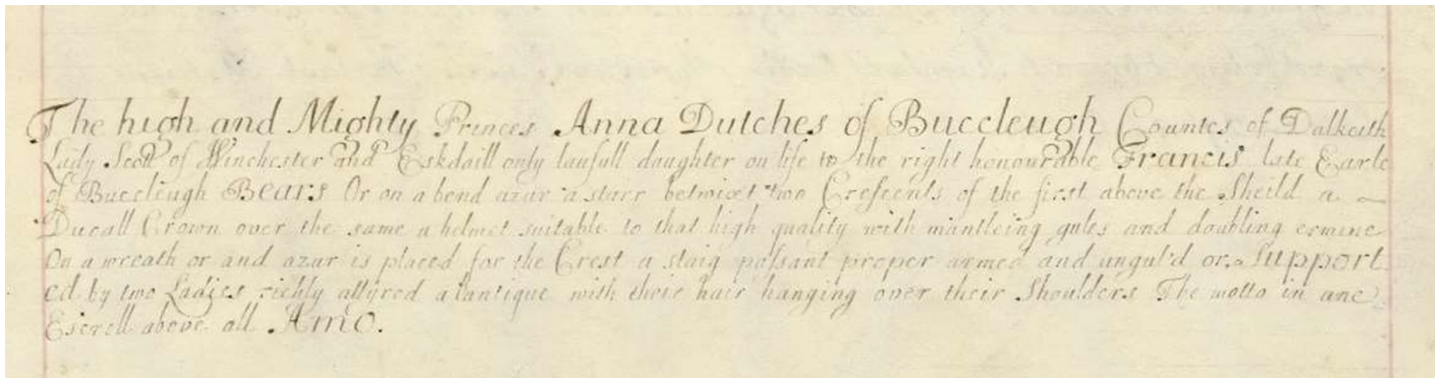 The high and Mighty Princes Anna Dutches of Buccleugh Countes of Dalkeith
Lady Scott of Winchester and Eskdaill only laufull daughter on life to the right honourable Francis late Earle
of Buccleugh Bears Or on a bend azur a starr betwixt two Crescents of the first above the Sheild a
Ducall Crown over the same a helmet suitable to that high quality with mantleing gules and doubling ermine
On a wreath or and azur is placed for the Crest a staig passant proper armed and ungul'd or. Support
ed by two Ladies richly attyred alantique with their hair hanging over their Shoulders The motto in ane
Escroll above all Amo.